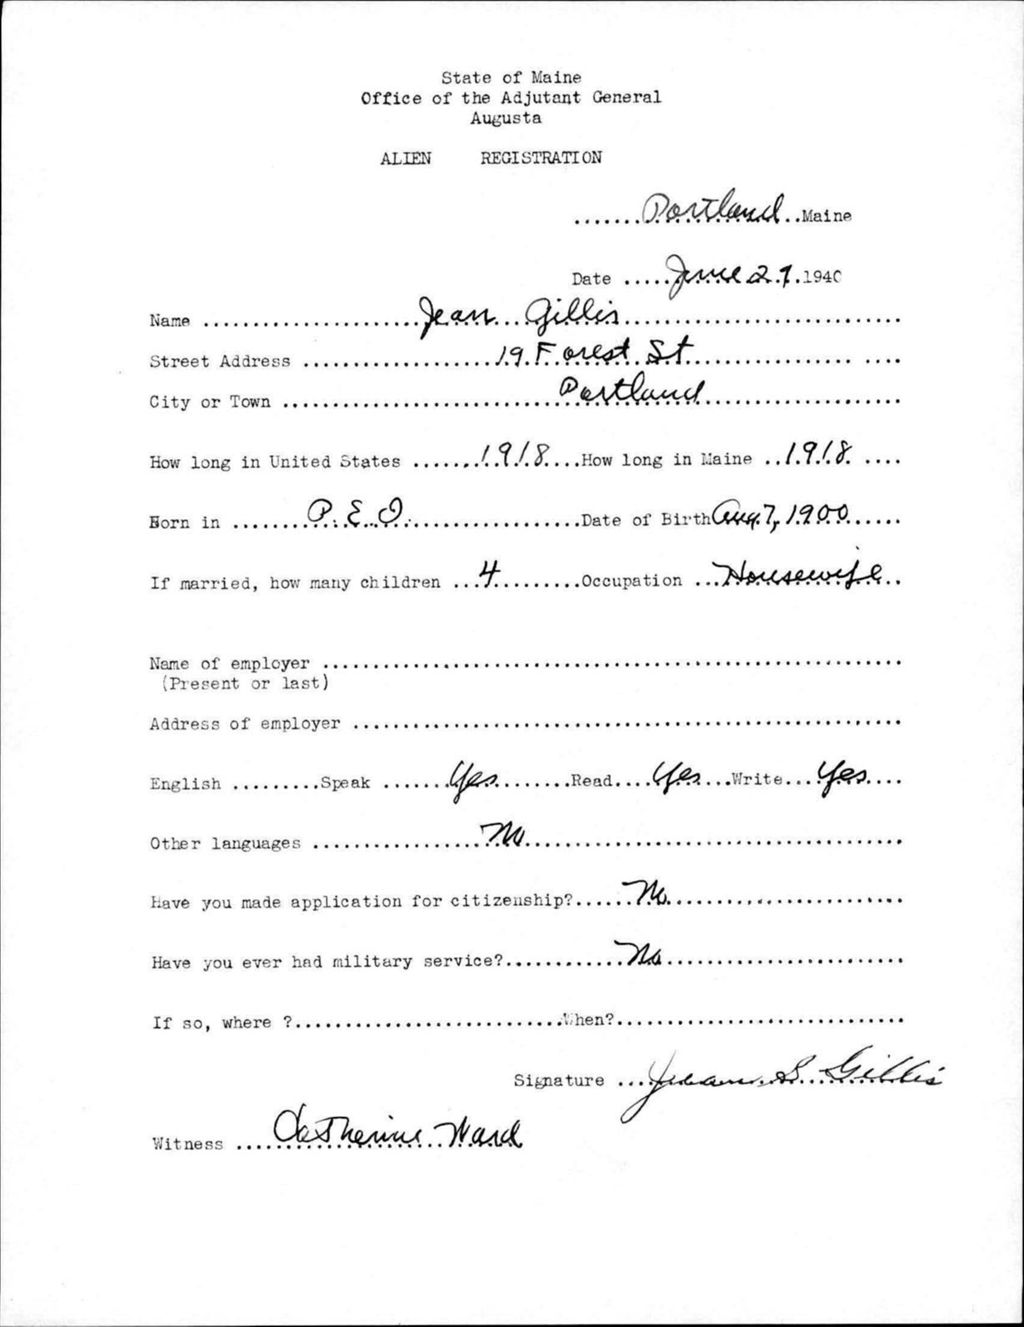 State of Maine
Office of the Adjutant General
Augusta
ALIEN REGISTRATION
.......Portland..Maine
Date .....June 27.1940
Name ......................Jean...Gillis............................
Street Address ...................19.Forest.St.................. ....
City or Town ............................Portland....................
How long in United States .......1918....How long in Maine ..1918. ....
Born in ........P.E.I.....................Date of Birth Aug.7, 1900......
If married, how many children ...4..........Occupation ...Housewife..
Name of employer ..........................................................
(Present or last)
Address of employer .......................................................
English .........Speak .......Yes.........Read....Yes...Write...Yes....
Other languages .................No......................................
Have you made application for citizenship?......No........................
Have you ever had military service?............No........................
If so, where ?...........................When?.............................
Signature ...Jean S. Gillis
Witness ....Catherine Ward